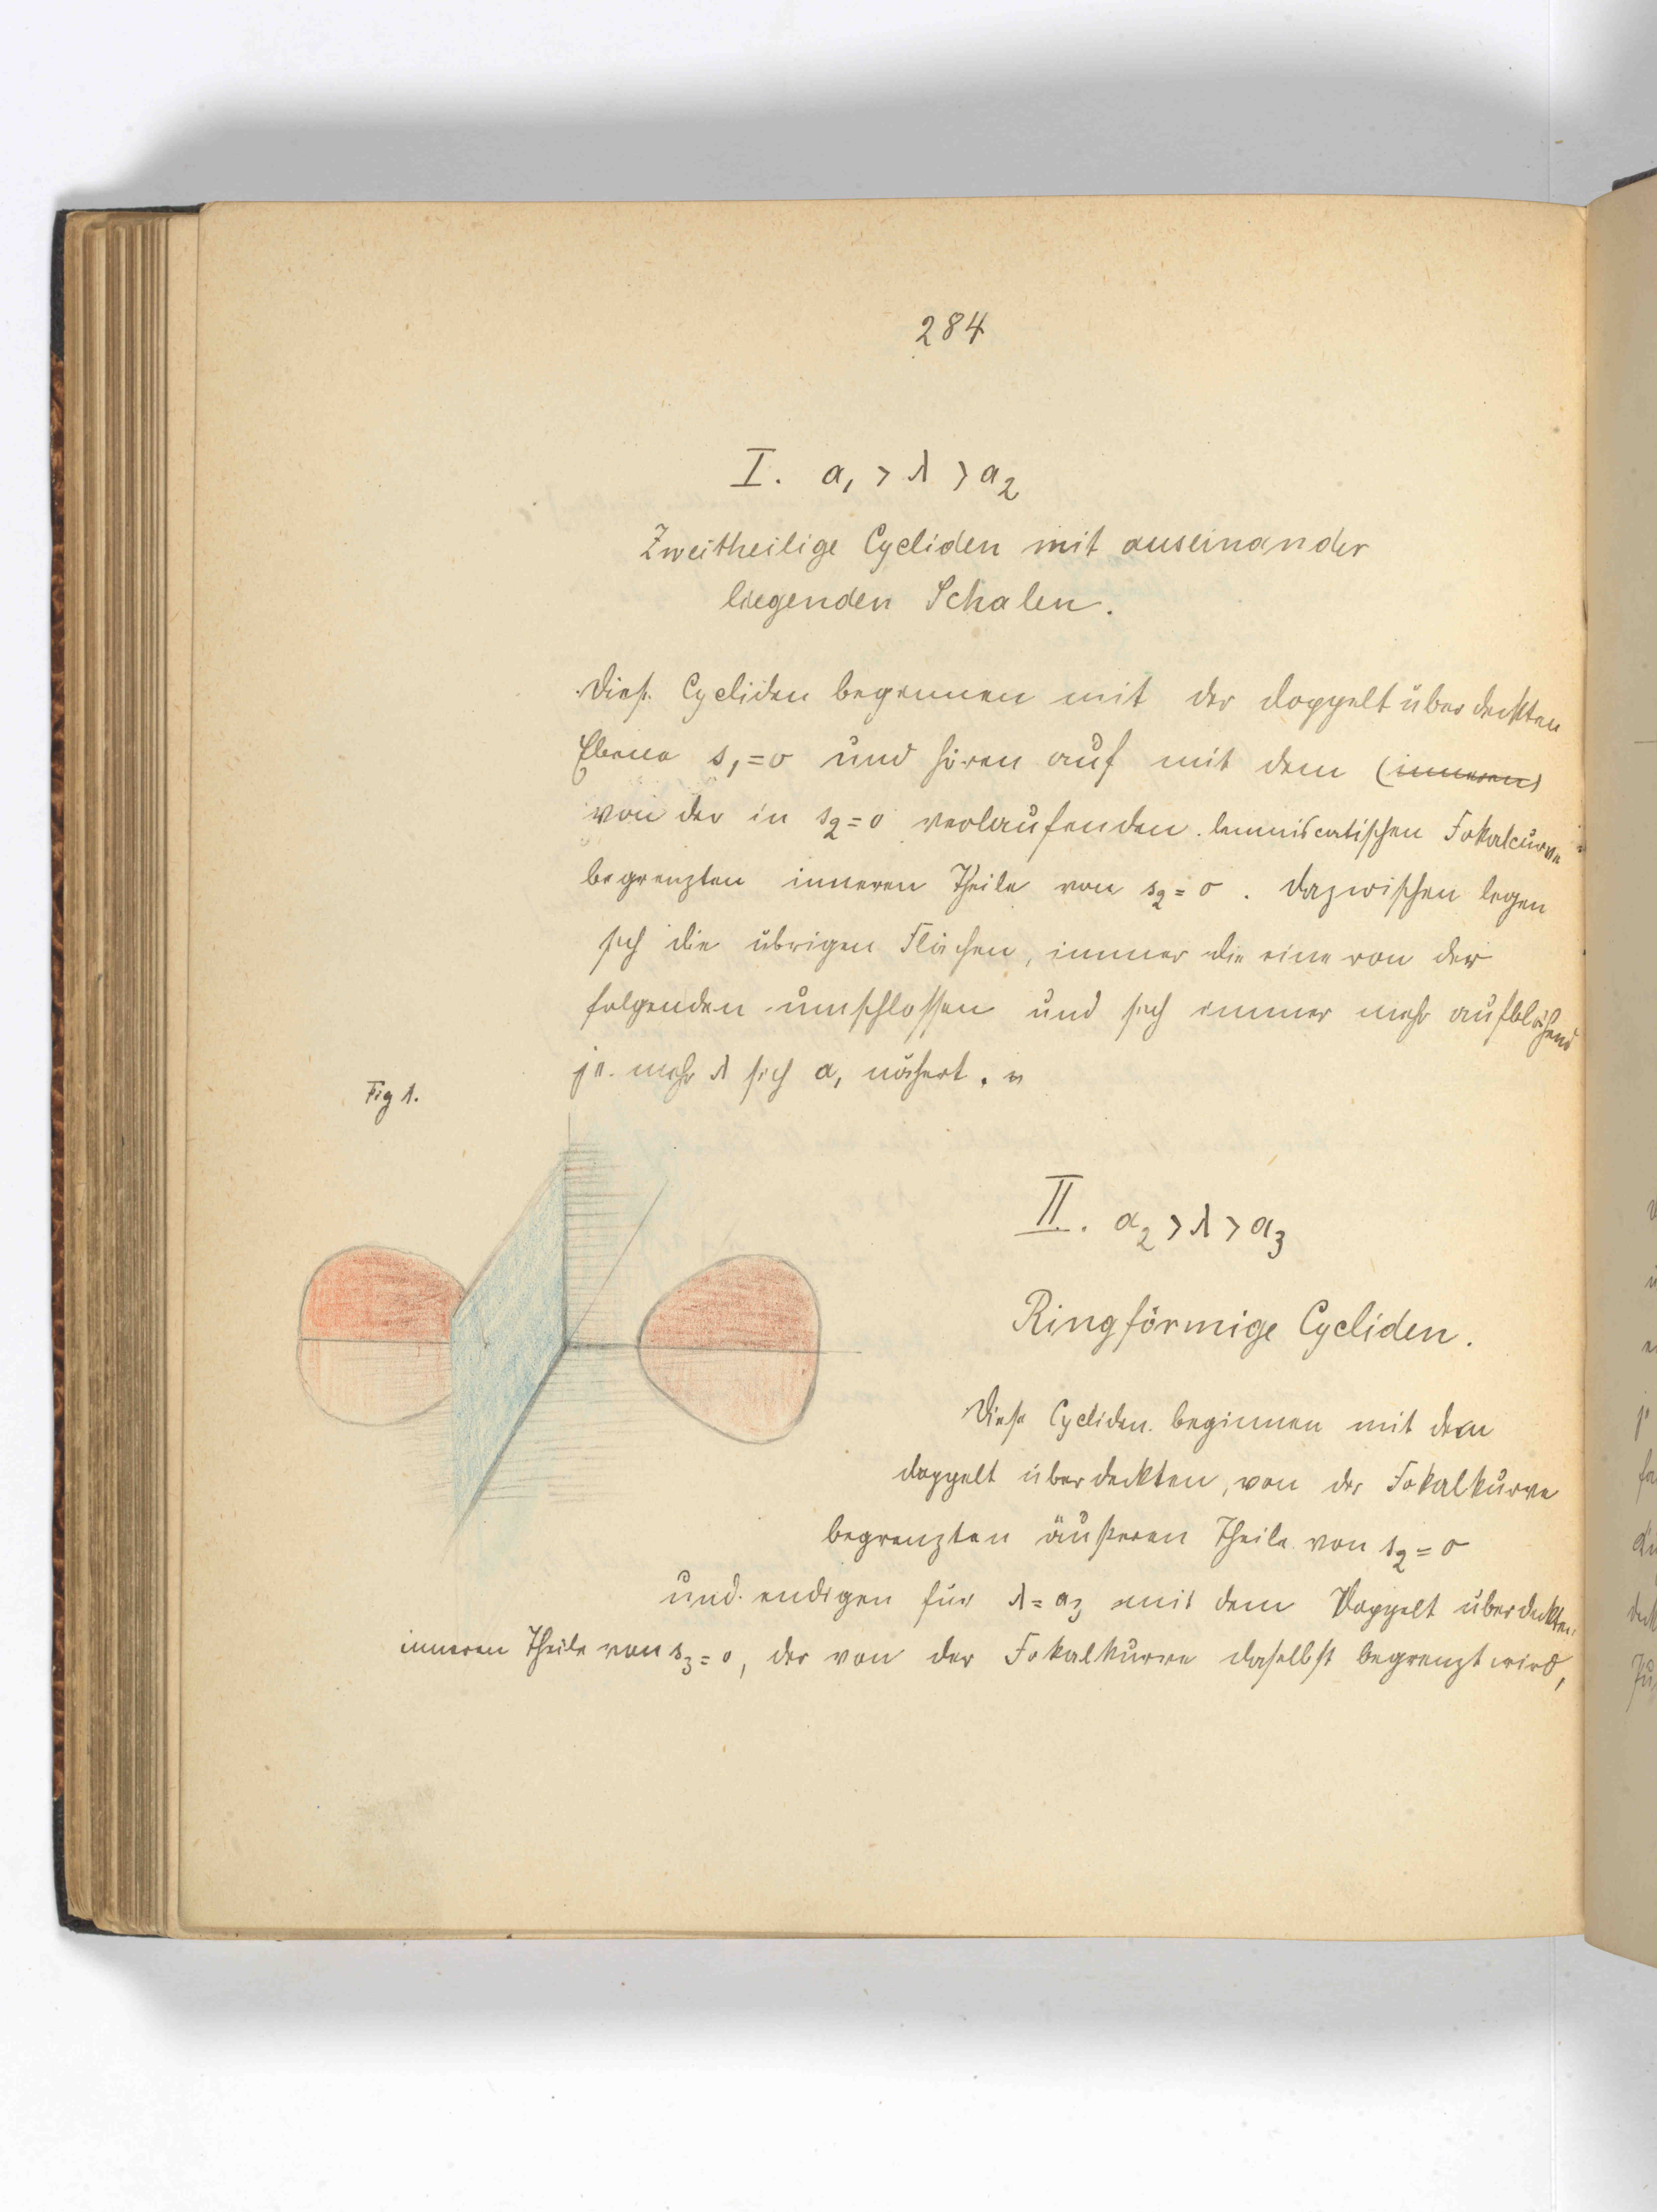 284
I. a₁ > λ > a₂
Zweitheilige Cycliden mit auseinander
liegenden Schalen.
Diese Cycliden beginnen mit der doppelt überdeckten
Ebene s₁=0 und hören auf mit dem (inneren)
von der in s₂=0 verlaufenden lemniscatischen Fokalcurve
begrenzten inneren Theile von s₂=0. Dazwischen legen
sich die übrigen Flächen, immer die eine von der
folgenden umschlossen und sich immer mehr aufblähend
je mehr λ sich a₁ nähert.
Fig 1.
II. a₂ > λ > a₃
Ringförmige Cycliden.
Diese Cycliden beginnen mit dem
doppelt überdeckten, von der Fokalkurve
begrenzten äußeren Theile von s₂=0
und endigen für λ=a₃ mit dem Doppelt überdeckten
inneren Theile von s₃=0, der von der Fokalkurve daselbst begrenzt wird,